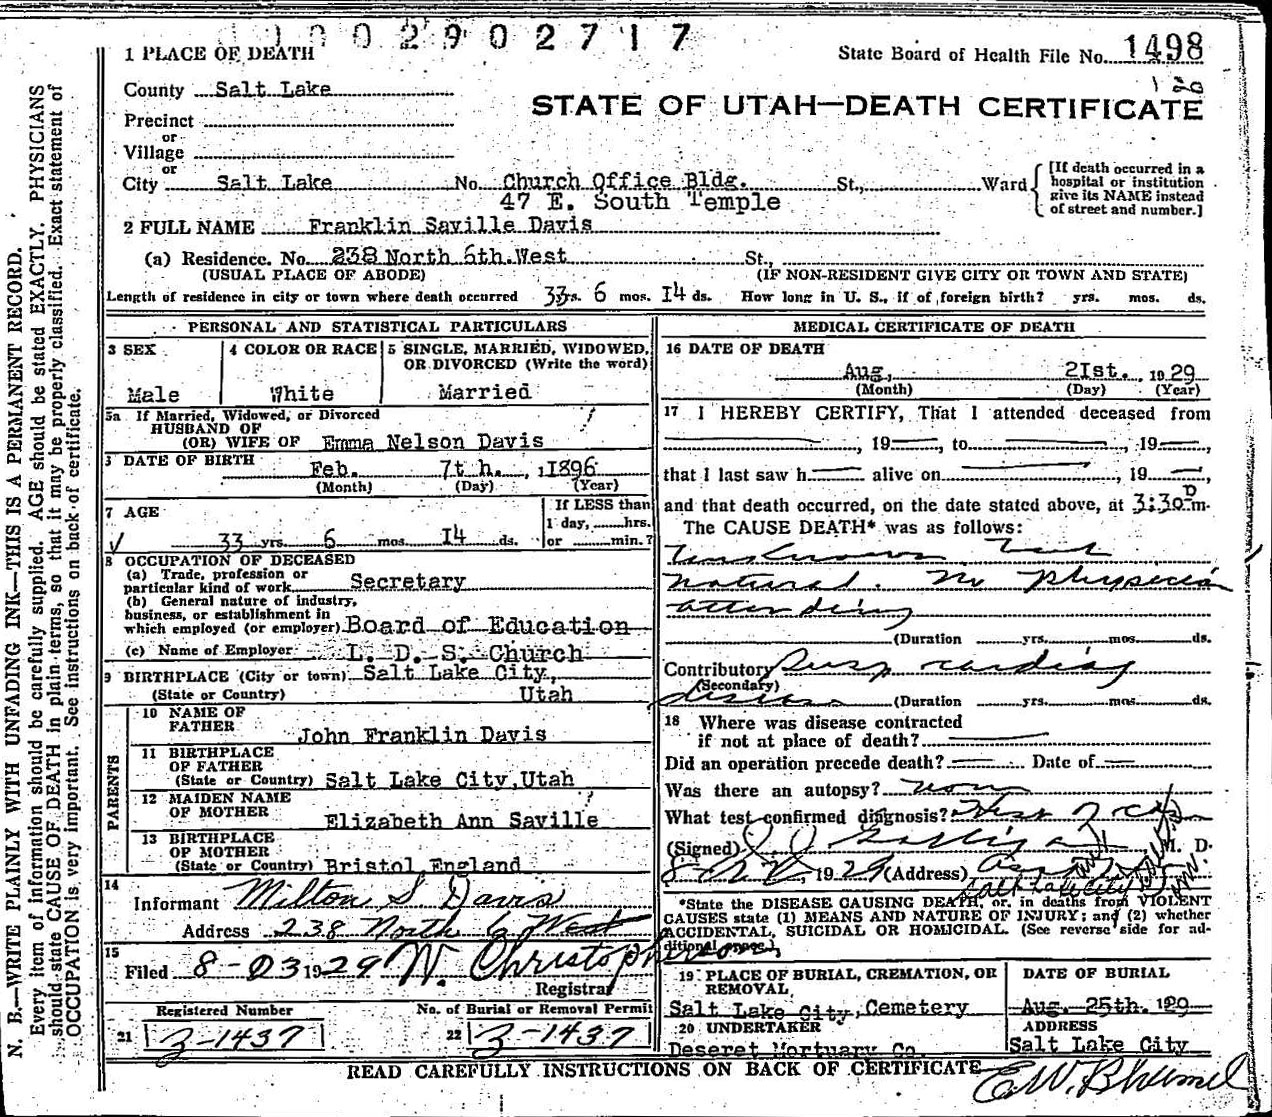 0 0 2 9 0 2 7 1 7
1 PLACE OF DEATH
State Board of Health File No. 1498
120
County Salt Lake
STATE OF UTAH—DEATH CERTIFICATE
Precinct
or
Village
or
City Salt Lake No. Church Office Bldg. St., Ward
47 E. South Temple
[If death occurred in a
hospital or institution
give its NAME instead
of street and number.]
2 FULL NAME Franklin Saville Davis
(a) Residence. No. 238 North 6th.West St.,
(USUAL PLACE OF ABODE) (IF NON-RESIDENT GIVE CITY OR TOWN AND STATE)
Length of residence in city or town where death occurred 33 yrs. 6 mos. I4 ds. How long in U. S., if of foreign birth? yrs. mos. ds.
PERSONAL AND STATISTICAL PARTICULARS
3 SEX
Male
4 COLOR OR RACE
White
5 SINGLE, MARRIED, WIDOWED,
OR DIVORCED (Write the word)
Married
5a If Married, Widowed, or Divorced
HUSBAND OF
(OR) WIFE OF Emma Nelson Davis
DATE OF BIRTH
Feb. 7th., 1896
(Month) (Day) (Year)
7 AGE
33 yrs. 6 mos. I4 ds.
If LESS than
1 day, hrs.
or min.?
8 OCCUPATION OF DECEASED
(a) Trade, profession or
particular kind of work Secretary
(b) General nature of industry,
business, or establishment in
which employed (or employer) Board of Education
(c) Name of Employer L. D. S. Church
9 BIRTHPLACE (City or town) Salt Lake City,
(State or Country) Utah
PARENTS
10 NAME OF
FATHER John Franklin Davis
11 BIRTHPLACE
OF FATHER
(State or Country) Salt Lake City, Utah
12 MAIDEN NAME
OF MOTHER Elizabeth Ann Saville
13 BIRTHPLACE
OF MOTHER
(State or Country) Bristol, England
14
Informant Milton S Davis
Address 238 North 6 West
15
Filed 8-23 1929 W. Christopherson,
Registrar
Registered Number
21 3-1437
No. of Burial or Removal Permit
22 3-1437
MEDICAL CERTIFICATE OF DEATH
16 DATE OF DEATH
Aug, 2Ist. 1929
(Month) (Day) (Year)
17 I HEREBY CERTIFY, That I attended deceased from
, 19 , to , 19 ,
that I last saw h alive on , 19 ,
and that death occurred, on the date stated above, at 3:30 p m.
The CAUSE DEATH* was as follows:
Unknown but
natural. No physician
attending
(Duration yrs. mos. ds.
Contributory cardiac
(Secondary)
disease (Duration yrs. mos. ds.
18 Where was disease contracted
if not at place of death?
Did an operation precede death? Date of
Was there an autopsy? none
What test confirmed diagnosis?
(Signed) , M. D.
8- , 1929 (Address)
Salt Lake City
*State the DISEASE CAUSING DEATH, or, in deaths from VIOLENT
CAUSES state (1) MEANS AND NATURE OF INJURY; and (2) whether
ACCIDENTAL, SUICIDAL OR HOMICIDAL. (See reverse side for ad-
ditional space.)
19 PLACE OF BURIAL, CREMATION, OR
REMOVAL
Salt Lake City, Cemetery
DATE OF BURIAL
Aug. 25th. 1929
20 UNDERTAKER
Deseret Mortuary Co.
ADDRESS
Salt Lake City
READ CAREFULLY INSTRUCTIONS ON BACK OF CERTIFICATE
N. B.—WRITE PLAINLY WITH UNFADING INK—THIS IS A PERMANENT RECORD.
Every item of information should be carefully supplied. AGE should be stated EXACTLY. PHYSICIANS
should state CAUSE OF DEATH in plain terms, so that it may be properly classified. Exact statement of
OCCUPATION is very important. See instructions on back of certificate.